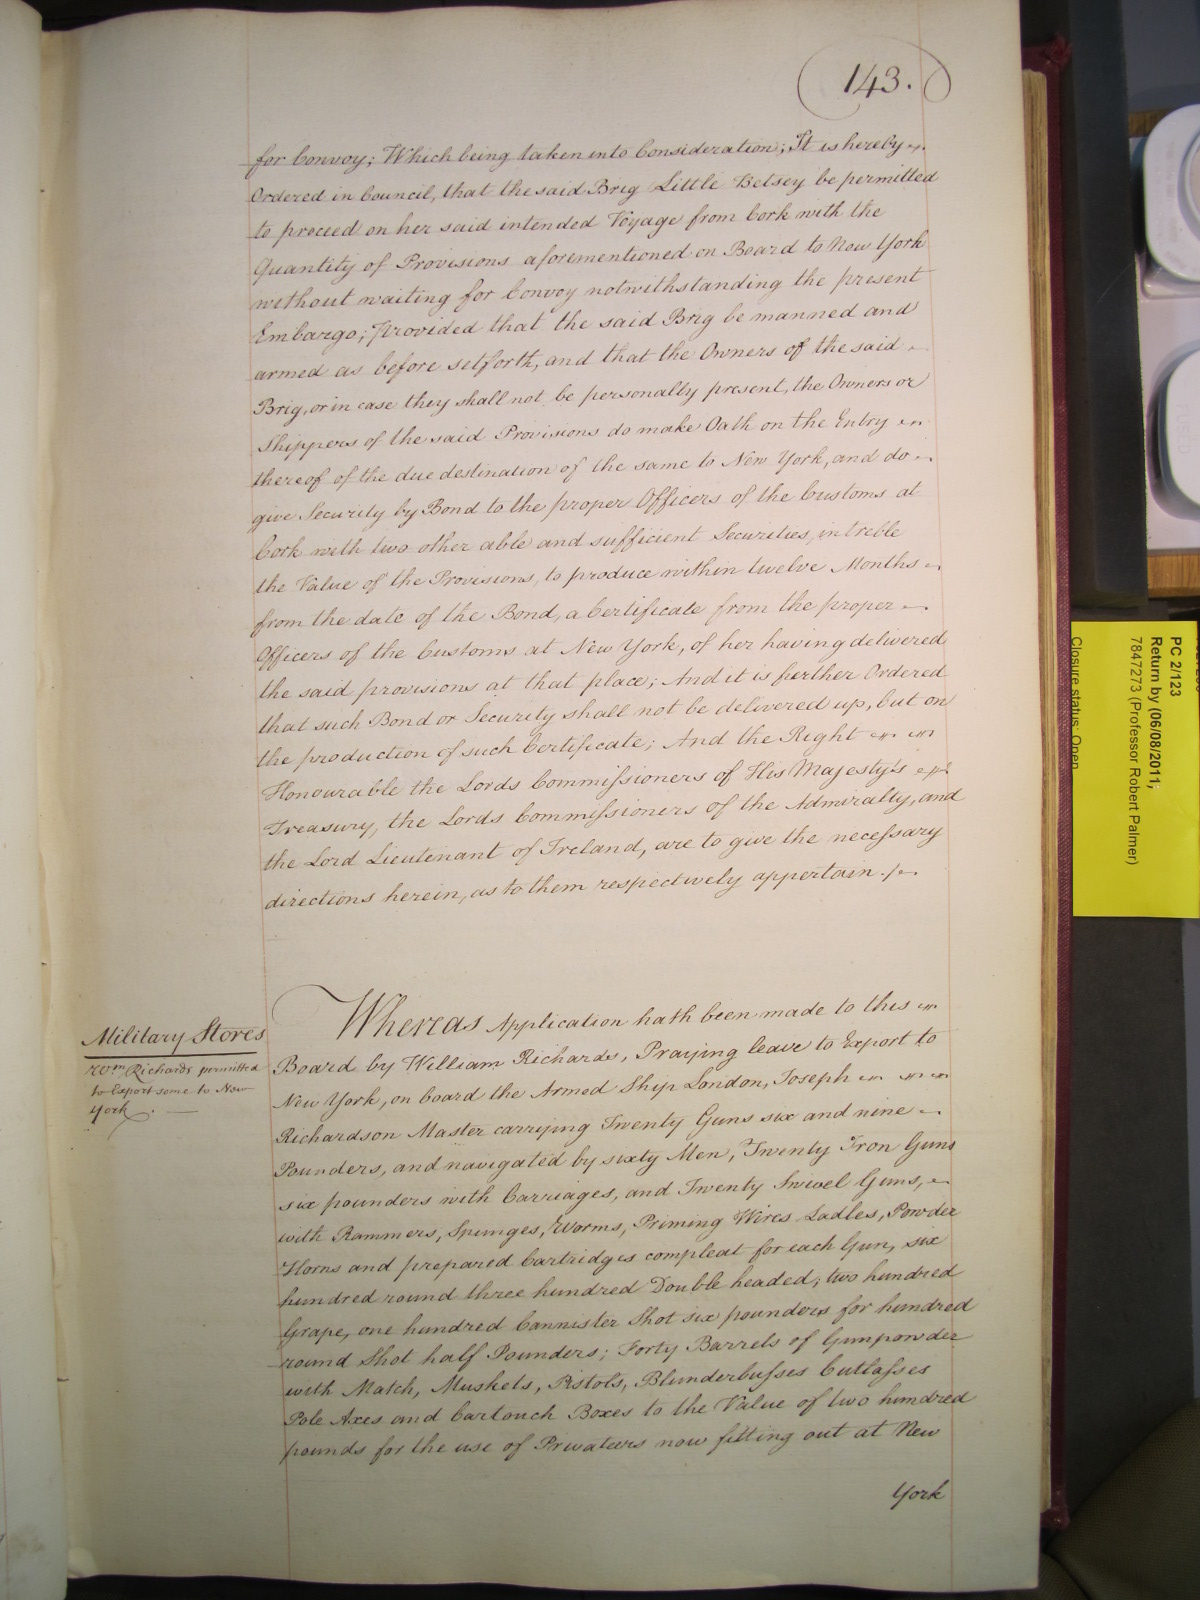 143.
for Convoy; Which being taken into Consideration; It is hereby
Ordered in Council, that the said Brig Little Betsey be permitted
to proceed on her said intended Voyage from Cork with the
Quantity of Provisions aforementioned on Board to New York
without waiting for Convoy notwithstanding the present
Embargo; Provided that the said Brig be manned and
armed as before setforth, and that the Owners of the said
Brig, or in case they shall not be personally present, the Owners or
Shippers of the said Provisions do make Oath on the Entry
thereof of the due destination of the same to New York, and do
give Security by Bond to the proper Officers of the Customs at
Cork with two other able and sufficient Securities, in treble
the Value of the Provisions, to produce within twelve Months
from the date of the Bond, a Certificate from the proper
Officers of the Customs at New York, of her having delivered
the said provisions at that place; And it is further Ordered
that such Bond or Security shall not be delivered up, but on
the production of such Certificate; And the Right
Honourable the Lords Commissioners of His Majesty's
Treasury, the Lords Commissioners of the Admiralty, and
the Lord Lieutenant of Ireland, are to give the necessary
directions herein, as to them respectively appertain ./.
Military Stores
Wm. Richards permitted
to Export some to New
York. —
Whereas Application hath been made to this
Board by William Richards, Praying leave to Export to
New York, on board the Armed Ship London, Joseph
Richardson Master carrying Twenty Guns six and nine
Pounders, and navigated by sixty Men, Twenty Iron Guns
six pounders with Carriages, and Twenty Swivel Guns,
with Rammers, Spunges, Worms, Priming Wires Ladles, Powder
Horns and prepared Cartridges compleat for each Gun, six
hundred round three hundred Double headed, two hundred
Grape, one hundred Cannister Shot six pounders for hundred
round Shot half Pounders; Forty Barrels of Gunpowder
with Match, Muskets, Pistols, Blunderbusses Cutlasses
Pole Axes and Cartouch Boxes to the Value of two hundred
pounds for the use of Privateers now fitting out at New
York
PC 2/123
Return by (06/08/2011;
7847273 (Professor Robert Palmer)
Closure status: Open